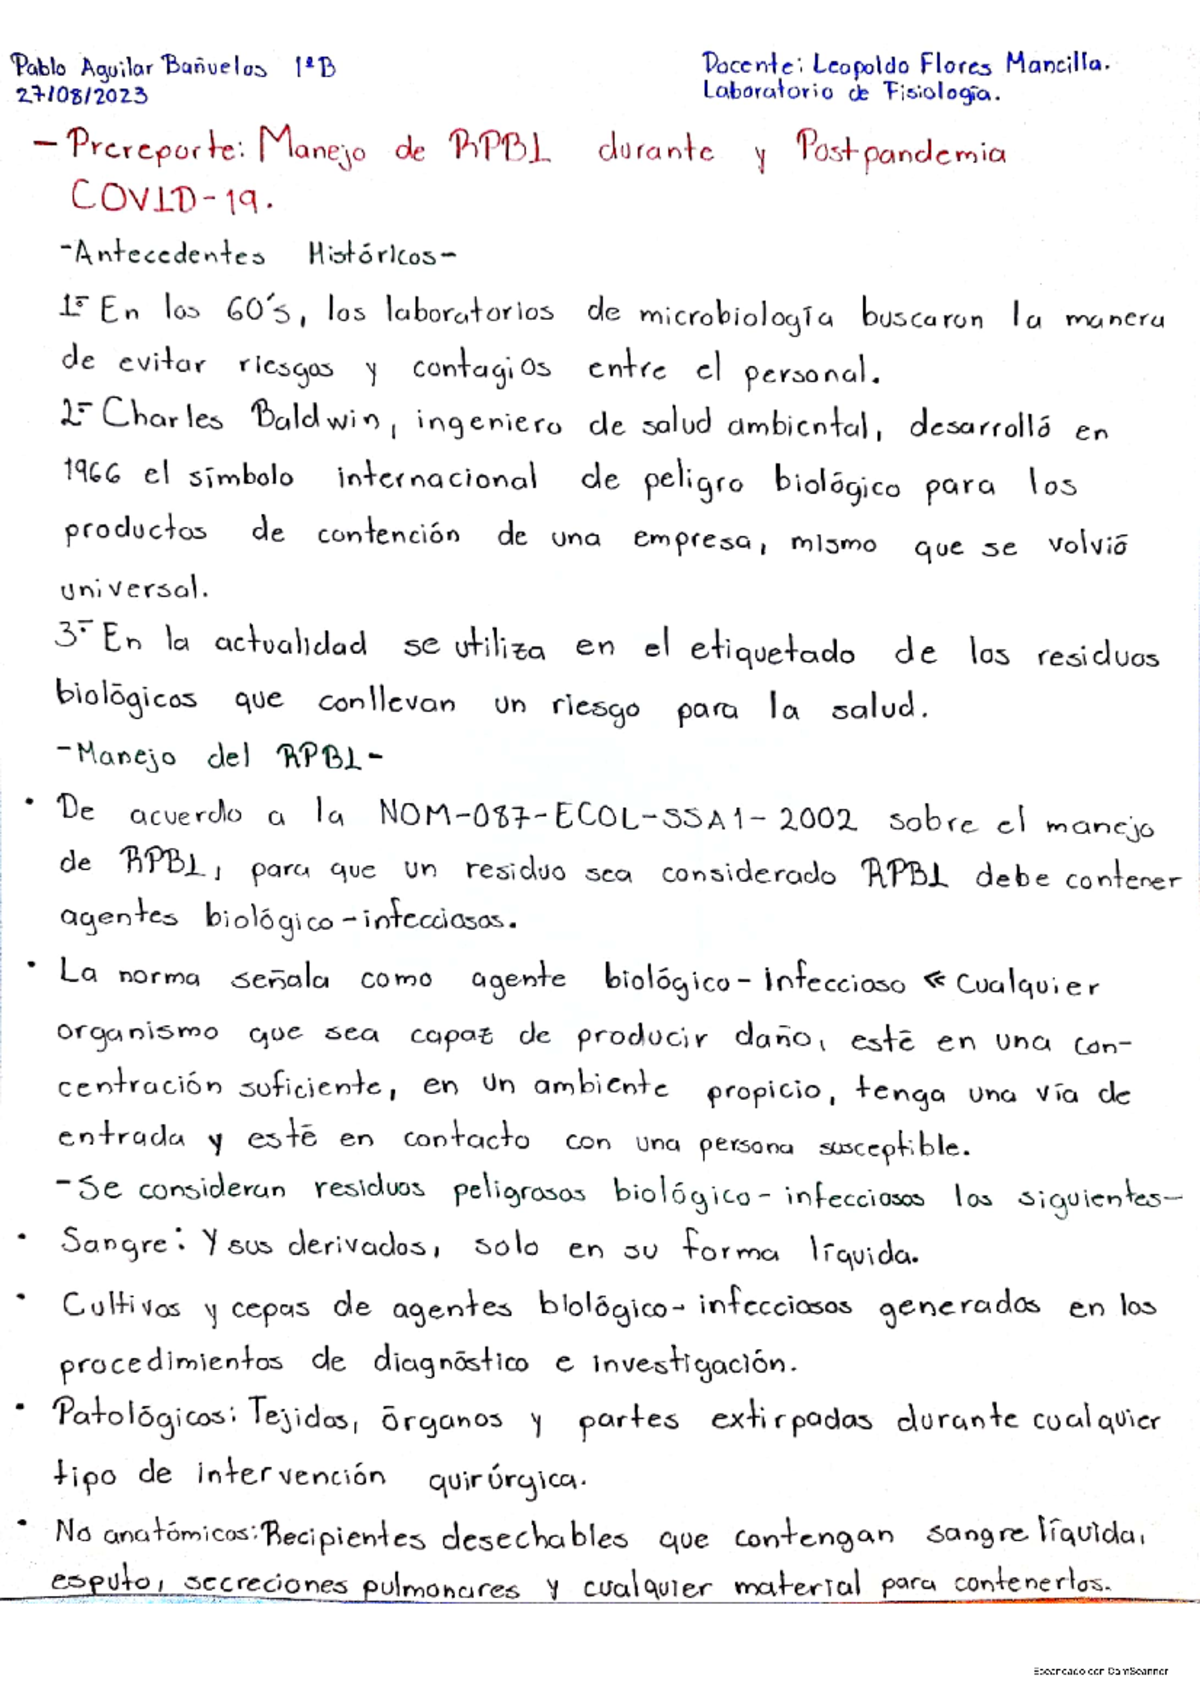 Pablo Aguilar Bañuelos 1ºB
Docente: Leopoldo Flores Mancilla.
27/08/2023
Laboratorio de Fisiología.
- Prereporte: Manejo de RPBI durante y Postpandemia
COVID-19.
-Antecedentes Históricos-
1º- En los 60's, los laboratorios de microbiología buscaron la manera
de evitar riesgos y contagios entre el personal.
2º- Charles Baldwin, ingeniero de salud ambiental, desarrolló en
1966 el símbolo internacional de peligro biológico para los
productos de contención de una empresa, mismo que se volvió
universal.
3º- En la actualidad se utiliza en el etiquetado de los residuos
biológicos que conllevan un riesgo para la salud.
-Manejo del RPBI-
• De acuerdo a la NOM-087-ECOL-SSA1-2002 sobre el manejo
de RPBI, para que un residuo sea considerado RPBI debe contener
agentes biológico-infecciosos.
• La norma señala como agente biológico-infeccioso « Cualquier
organismo que sea capaz de producir daño, esté en una con-
centración suficiente, en un ambiente propicio, tenga una vía de
entrada y esté en contacto con una persona susceptible.
-Se consideran residuos peligrosos biológico-infecciosos los siguientes-
• Sangre: Y sus derivados, solo en su forma líquida.
• Cultivos y cepas de agentes biológico-infecciosos generados en los
procedimientos de diagnóstico e investigación.
• Patológicos: Tejidos, órganos y partes extirpadas durante cualquier
tipo de intervención quirúrgica.
• No anatómicos: Recipientes desechables que contengan sangre líquida,
esputo, secreciones pulmonares y cualquier material para contenerlos.
Escaneado con CamScanner